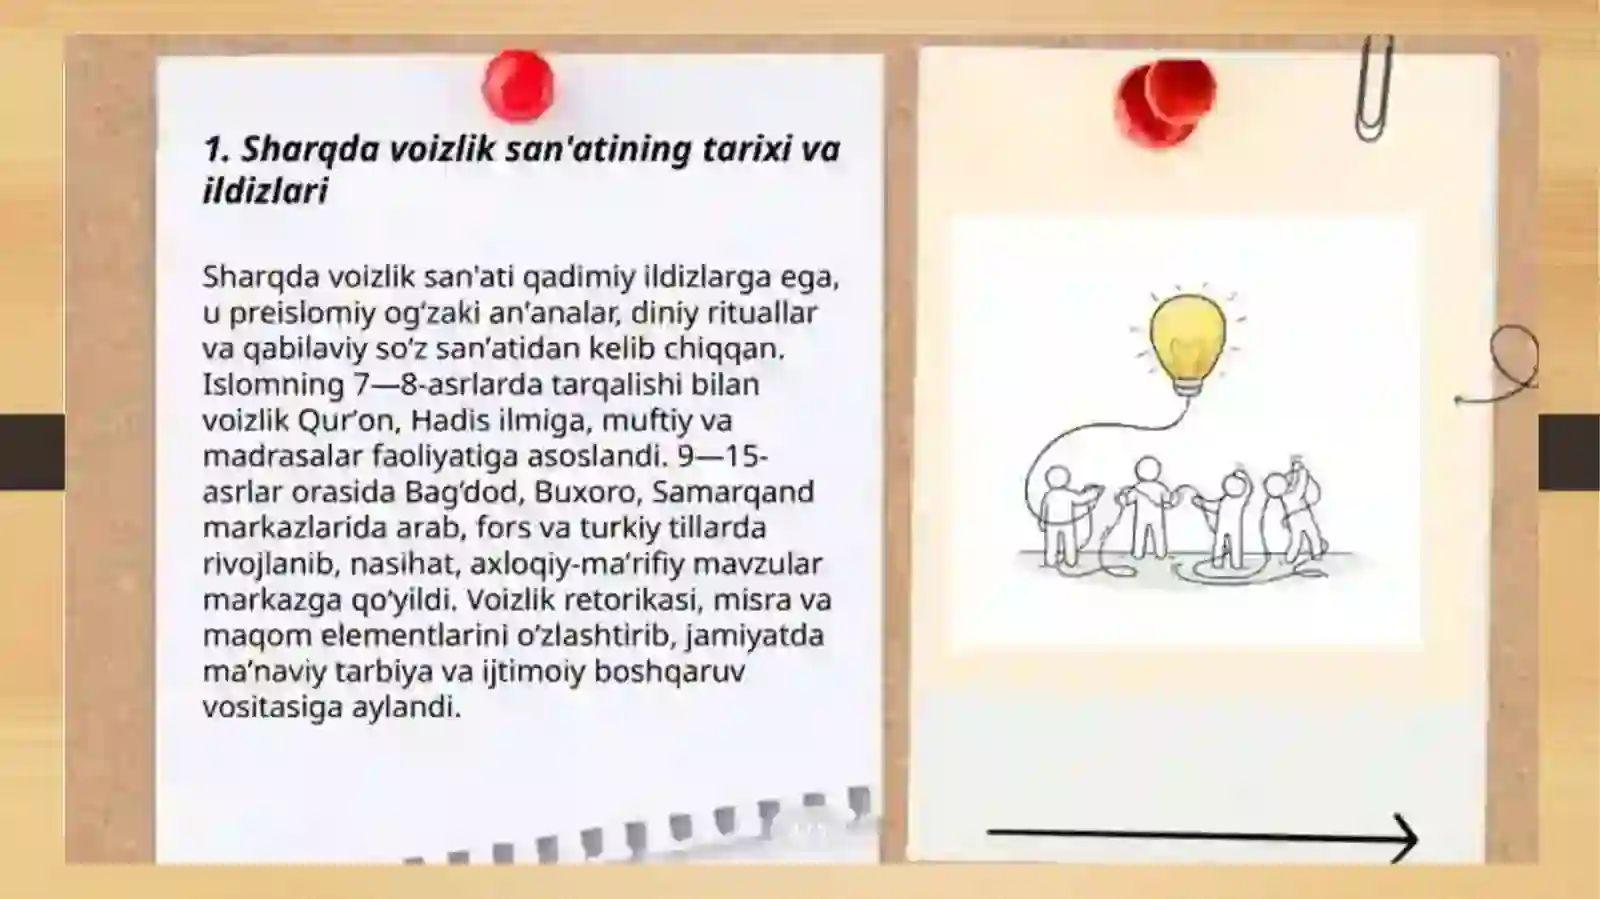 1. Sharqda voizlik san'atining tarixi va
ildizlari
Sharqda voizlik san'ati qadimiy ildizlarga ega,
u preislomiy og‘zaki an’analar, diniy rituallar
va qabilaviy so‘z san’atidan kelib chiqqan.
Islomning 7—8-asrlarda tarqalishi bilan
voizlik Qur’on, Hadis ilmiga, muftiy va
madrasalar faoliyatiga asoslandi. 9—15-
asrlar orasida Bag‘dod, Buxoro, Samarqand
markazlarida arab, fors va turkiy tillarda
rivojlanib, nasihat, axloqiy-ma’rifiy mavzular
markazga qo‘yildi. Voizlik retorikasi, misra va
maqom elementlarini o‘zlashtirib, jamiyatda
ma’naviy tarbiya va ijtimoiy boshqaruv
vositasiga aylandi.